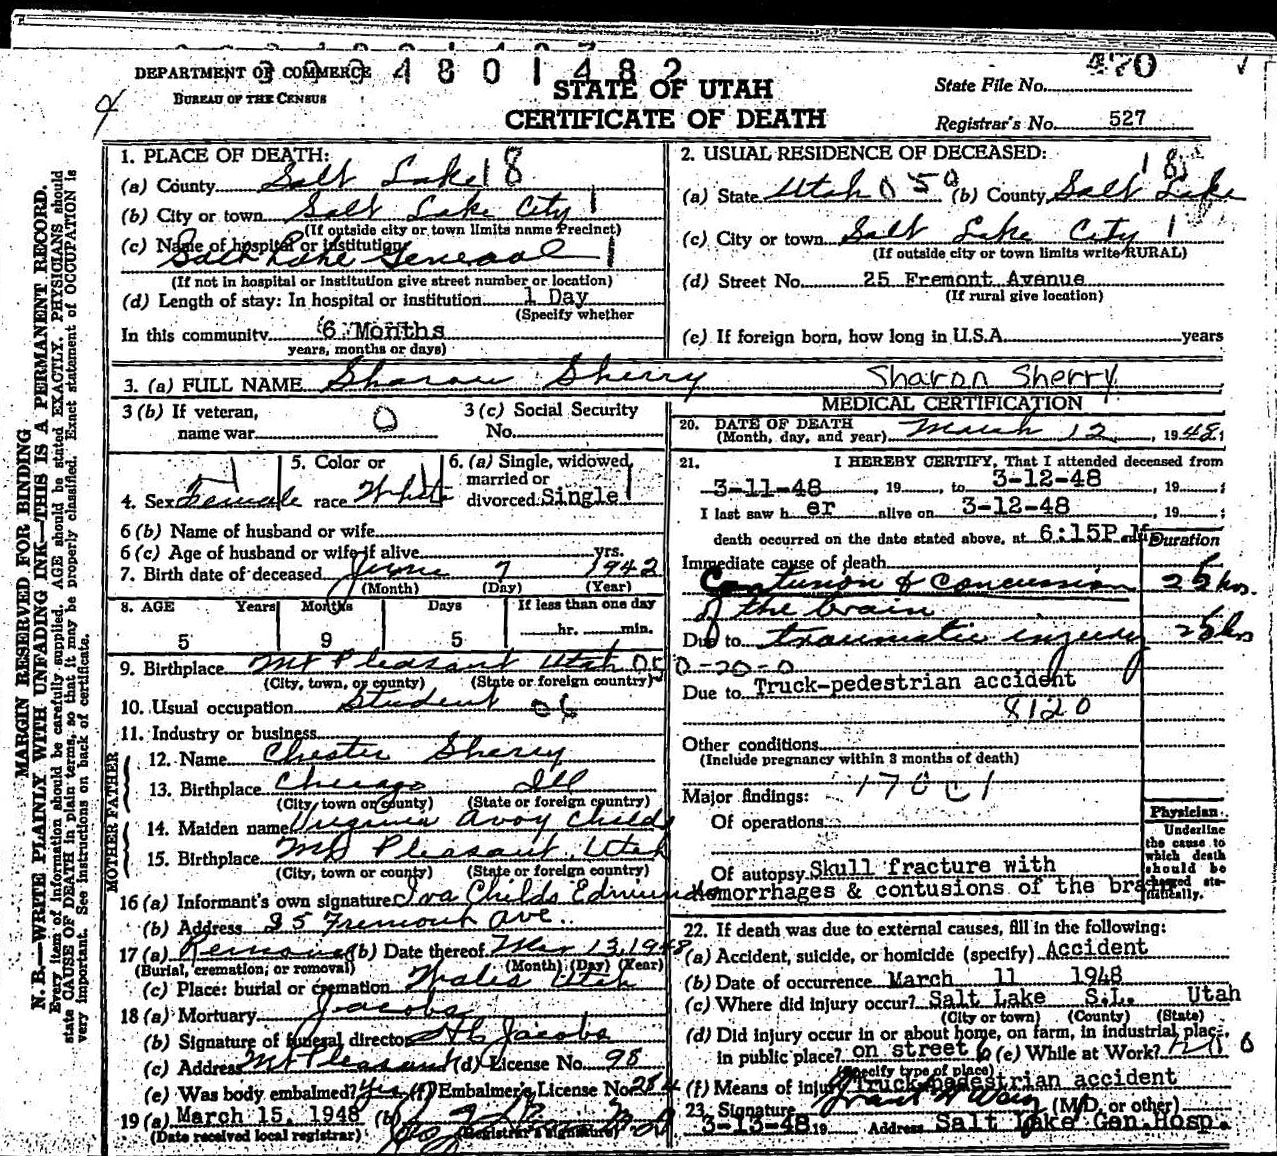 DEPARTMENT OF COMMERCE
BUREAU OF THE CENSUS
STATE OF UTAH
CERTIFICATE OF DEATH
State File No. 470
Registrar's No. 527
MARGIN RESERVED FOR BINDING
N. B.—WRITE PLAINLY WITH UNFADING INK—THIS IS A PERMANENT RECORD.
Every item of information should be carefully supplied. AGE should be stated EXACTLY. PHYSICIANS should
state CAUSE OF DEATH in plain terms, so that it may be properly classified. Exact statement of OCCUPATION is
very important. See instructions on back of certificate.
1. PLACE OF DEATH:
(a) County Salt Lake 18
(b) City or town Salt Lake City 1
(If outside city or town limits name Precinct)
(c) Name of hospital or institution
Salt Lake General 1
(If not in hospital or institution give street number or location)
(d) Length of stay: In hospital or institution 1 Day
(Specify whether
In this community 6 Months
years, months or days)
2. USUAL RESIDENCE OF DECEASED:
(a) State Utah 050 (b) County Salt Lake
(c) City or town Salt Lake City 1
(If outside city or town limits write RURAL)
(d) Street No. 25 Fremont Avenue
(If rural give location)
(e) If foreign born, how long in U.S.A. years
3. (a) FULL NAME Sharon Sherry Sharon Sherry
3 (b) If veteran, name war 0
3 (c) Social Security No.
4. Sex Female
5. Color or race White
6. (a) Single, widowed, married or divorced Single
6 (b) Name of husband or wife
6 (c) Age of husband or wife if alive yrs.
7. Birth date of deceased June 7 1942
(Month) (Day) (Year)
8. AGE Years Months Days If less than one day
5 9 5 hr. min.
9. Birthplace Mt Pleasant Utah 050
(City, town, or county) (State or foreign country)
10. Usual occupation Student
11. Industry or business
FATHER
12. Name Chester Sherry
13. Birthplace Chicago Ill
(City town or county) (State or foreign country)
MOTHER
14. Maiden name Virginia Avoy Childs
15. Birthplace Mt Pleasant, Utah
(City, town or county) (State or foreign country)
16 (a) Informant's own signature Iva Childs Edmunds
(b) Address 25 Fremont Ave.
17 (a) Removal (b) Date thereof Mar 13, 1948
(Burial, cremation, or removal) (Month) (Day) (Year)
(c) Place: burial or cremation Wales Utah
18 (a) Mortuary Jacobs
(b) Signature of funeral director Jacobs
(c) Address Mt Pleasant (d) License No. 98
(e) Was body embalmed? Yes (f) Embalmer's License No. 284
19 (a) March 15, 1948 (b)
(Date received local registrar) (Registrar's signature)
MEDICAL CERTIFICATION
20. DATE OF DEATH
(Month, day, and year) March 12, 1948
21. I HEREBY CERTIFY, That I attended deceased from
3-11-48, 19 , to 3-12-48, 19 ;
I last saw h er alive on 3-12-48, 19 ;
death occurred on the date stated above, at 6:15P M.
Duration
Immediate cause of death
Contusion & concussion
of the brain
Due to traumatic injury
0-20-0
Due to Truck-pedestrian accident
8120
Other conditions
(Include pregnancy within 3 months of death)
Major findings: 170c1
Of operations
Of autopsy Skull fracture with
hemorrhages & contusions of the brain
Physician
Underline the cause to which death should be charged statistically.
22. If death was due to external causes, fill in the following:
(a) Accident, suicide, or homicide (specify) Accident
(b) Date of occurrence March 11 1948
(c) Where did injury occur? Salt Lake S.L. Utah
(City or town) (County) (State)
(d) Did injury occur in or about home, on farm, in industrial place,
in public place? on street (e) While at Work? no
(Specify type of place)
(f) Means of injury Truck-pedestrian accident
23. Signature (M.D. or other)
3-13-48 19 Address Salt Lake Gen. Hosp.